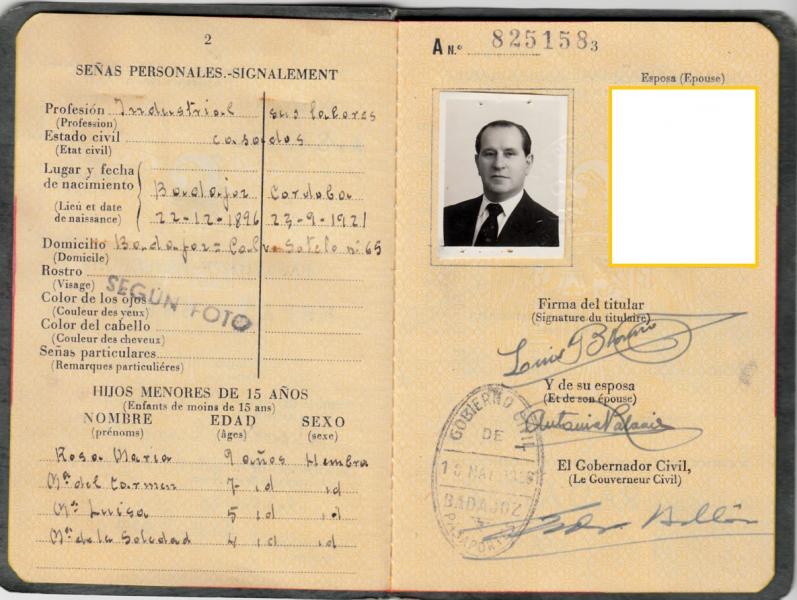 2
SEÑAS PERSONALES.-SIGNALEMENT
Profesión Industrial sus labores
(Profession)
Estado civil casados
(Etat civil)
Lugar y fecha
de nacimiento Badajoz Cordoba
(Lieu et date
de naissance) 22-12-1896 23-9-1921
Domicilio Badajoz= Calvo Sotelo nº 65
(Domicile)
Rostro
(Visage)
SEGÚN FOTO
Color de los ojos
(Couleur des yeux)
Color del cabello
(Couleur des cheveux)
Señas particulares
(Remarques particuliéres)
HIJOS MENORES DE 15 AÑOS
(Enfants de moins de 15 ans)
NOMBRE EDAD SEXO
(prénoms) (âges) (sexe)
Rosa Maria 9 años Hembra
Mª del Carmen 7 id id
Mª Luisa 5 id id
Mª de la Soledad 4 id id
A N.º 825158 3
Esposa (Epouse)
Firma del titular
(Signature du titulaire)
Y de su esposa
(Et de son épouse)
Antonia Palacio
GOBIERNO CIVIL
DE
BADAJOZ
PASAPORTES
El Gobernador Civil,
(Le Gouverneur Civil)